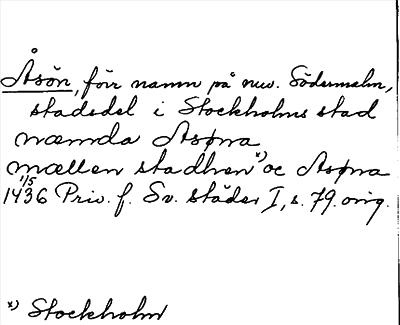 Åsön, förr namn på nuv. Södermalm,
stadsdel i Stockholms stad
næmda Asøna
mællen stadhen x) oc Asøna
1/5 1436 Priv. f. Sv. städer I, s. 79. orig.
x) Stockholm